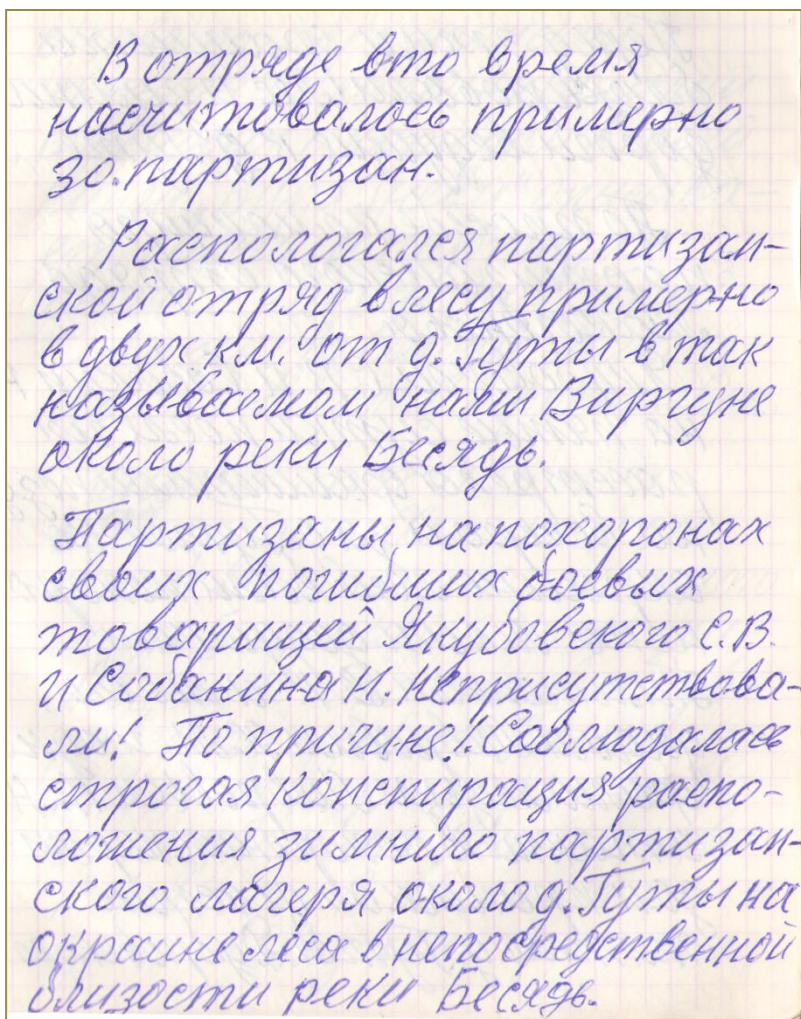 В отряде в то время
насчитовалось примерно
30. партизан.
Распологался партизан-
ской отряд в лесу примерно
в двух км. от д. Гуты в так
называемом нами Виргуне
около реки Беседь.
Партизаны на похоронах
своих погибших боевых
товарищей Якубовского С.В.
и Собанина Н. неприсутствова-
ли! По причине! Соблюдалась
строгая конспирация распо-
ложения зимниго партизан-
ского лагеря около д. Гуты на
окраине леса в непосредственной
близости реки Беседь.